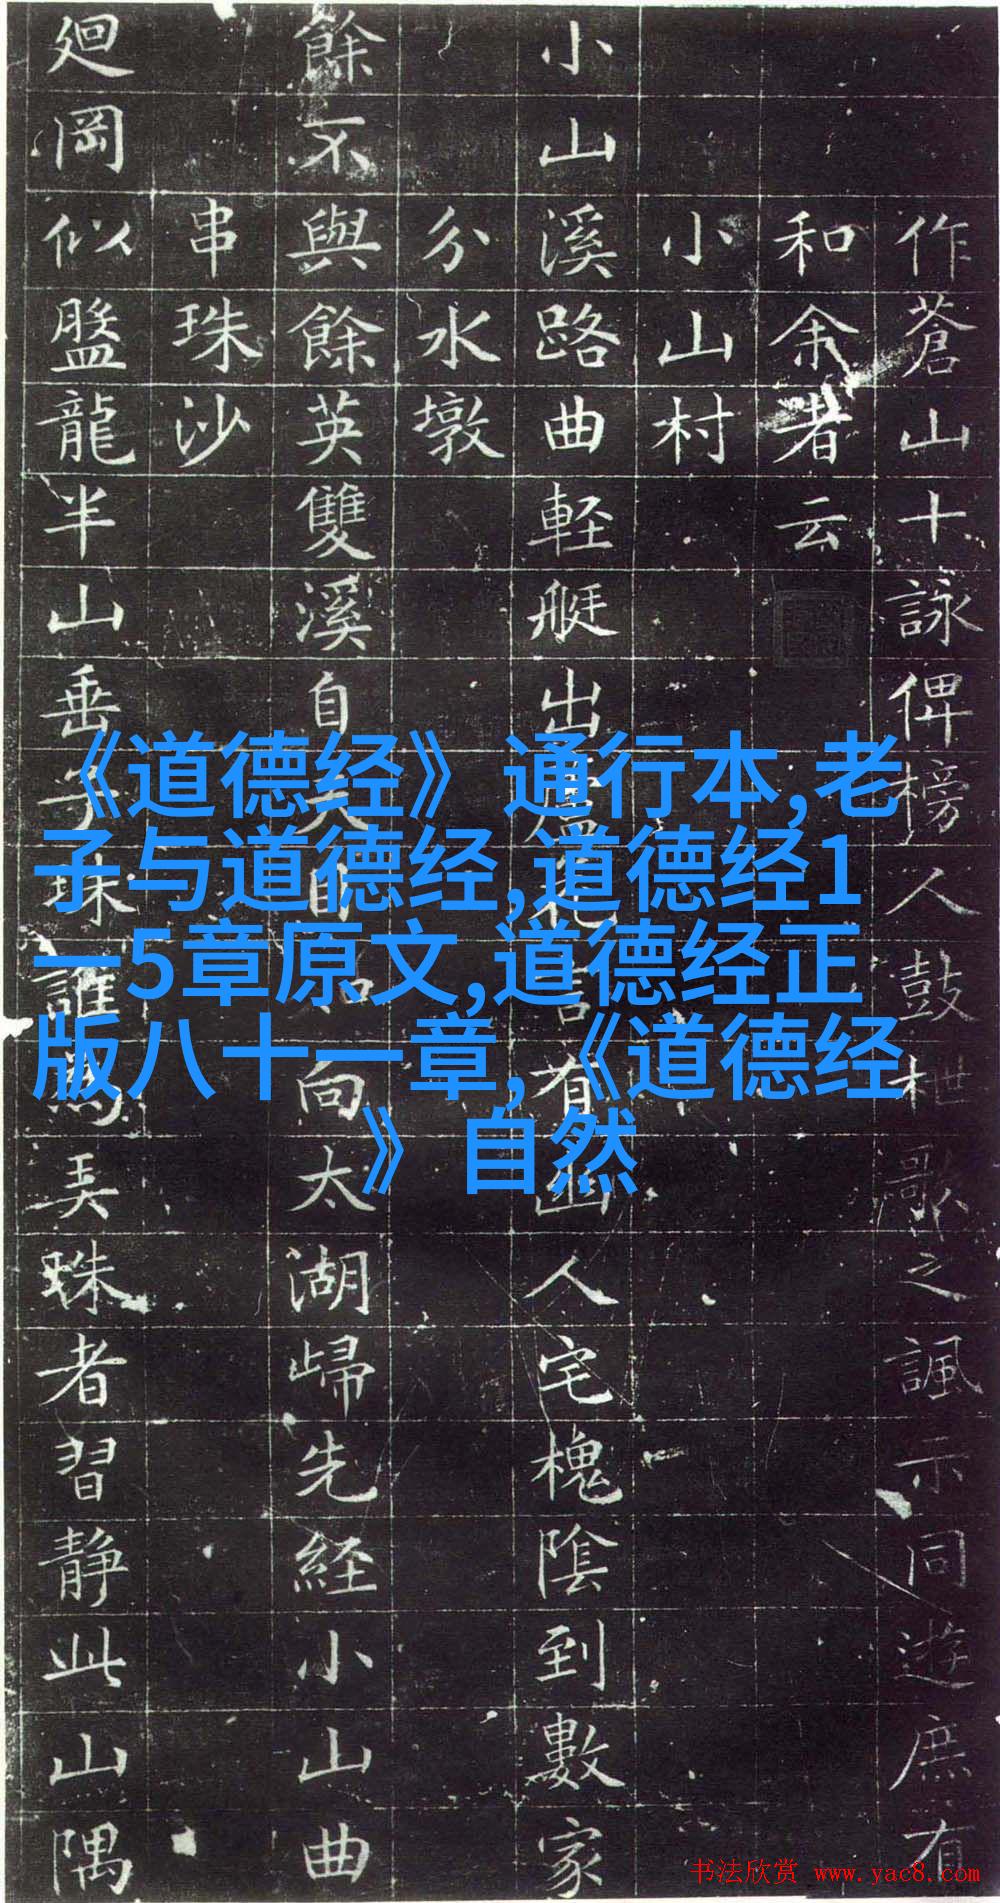 作蒼山十詠俾榜人鼓枻歌之諷示同遊庶有
和余者云
小山村
小山溪路曲軽艇出花言有幽人宅槐陰到數家
分水墩
餘不與餘英雙溪自向太湖歸先経小山曲
串珠沙
廻岡似盤龍半山垂子珠誰為弄珠者習静此山隅
《道德经》通行本,老
子与道德经,道德经1
一5章原文,道德经正
版八十一章,《道德经
》自然
书法欣赏 www.yac8.com